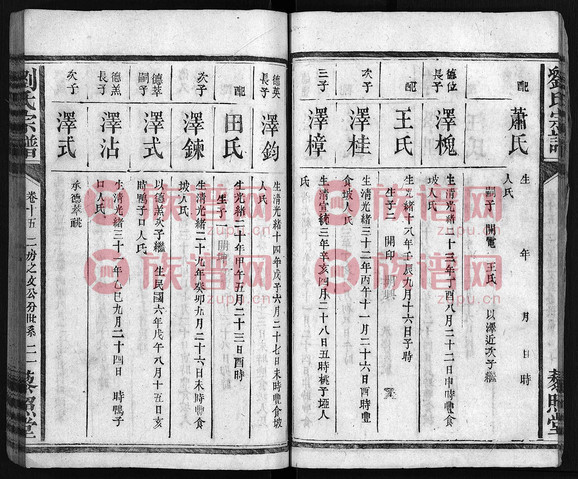 劉氏宗譜
蕭氏
生 年 月 日 時
人氏
嗣子 開電 王氏 以澤近次子繼
德位
長子
澤槐
生清光緒二十三年丁酉八月二十二日申時豐食
坡人氏
配
王氏
生光緒十八年壬辰九月二十六日子時
生子二 開印
次子
澤桂
生清光緒三十二年丙午十一月二十六日酉時豐
食坡人氏
三子
澤樟
生清宣統三年辛亥四月二十八日丑時桃子埡人
氏
藜照堂
德英
長子
澤鈞
生清光緒十四年戊子六月二十七日未時豐食坡
人氏
配
田氏
生光緒二十年甲午五月二十三日酉時
生子一
次子
澤鍊
生清光緒二十九年癸卯九月二十六日未時豐食
坡人氏
德萃
嗣子
澤式
以德羔次子繼 生民國六年戊午八月十五日亥
時鴨子口人氏
德羔
長子
澤沾
生清光緒三十一年乙巳九月二十四日 時鴨子
口人氏
次子
澤式
承德萃祧
劉氏宗譜
卷十五
二房之文公分世系
二一
藜照堂
族谱网
zupu.cn
族谱网
zupu.cn
族谱网
zupu.cn
族谱网
zupu.cn